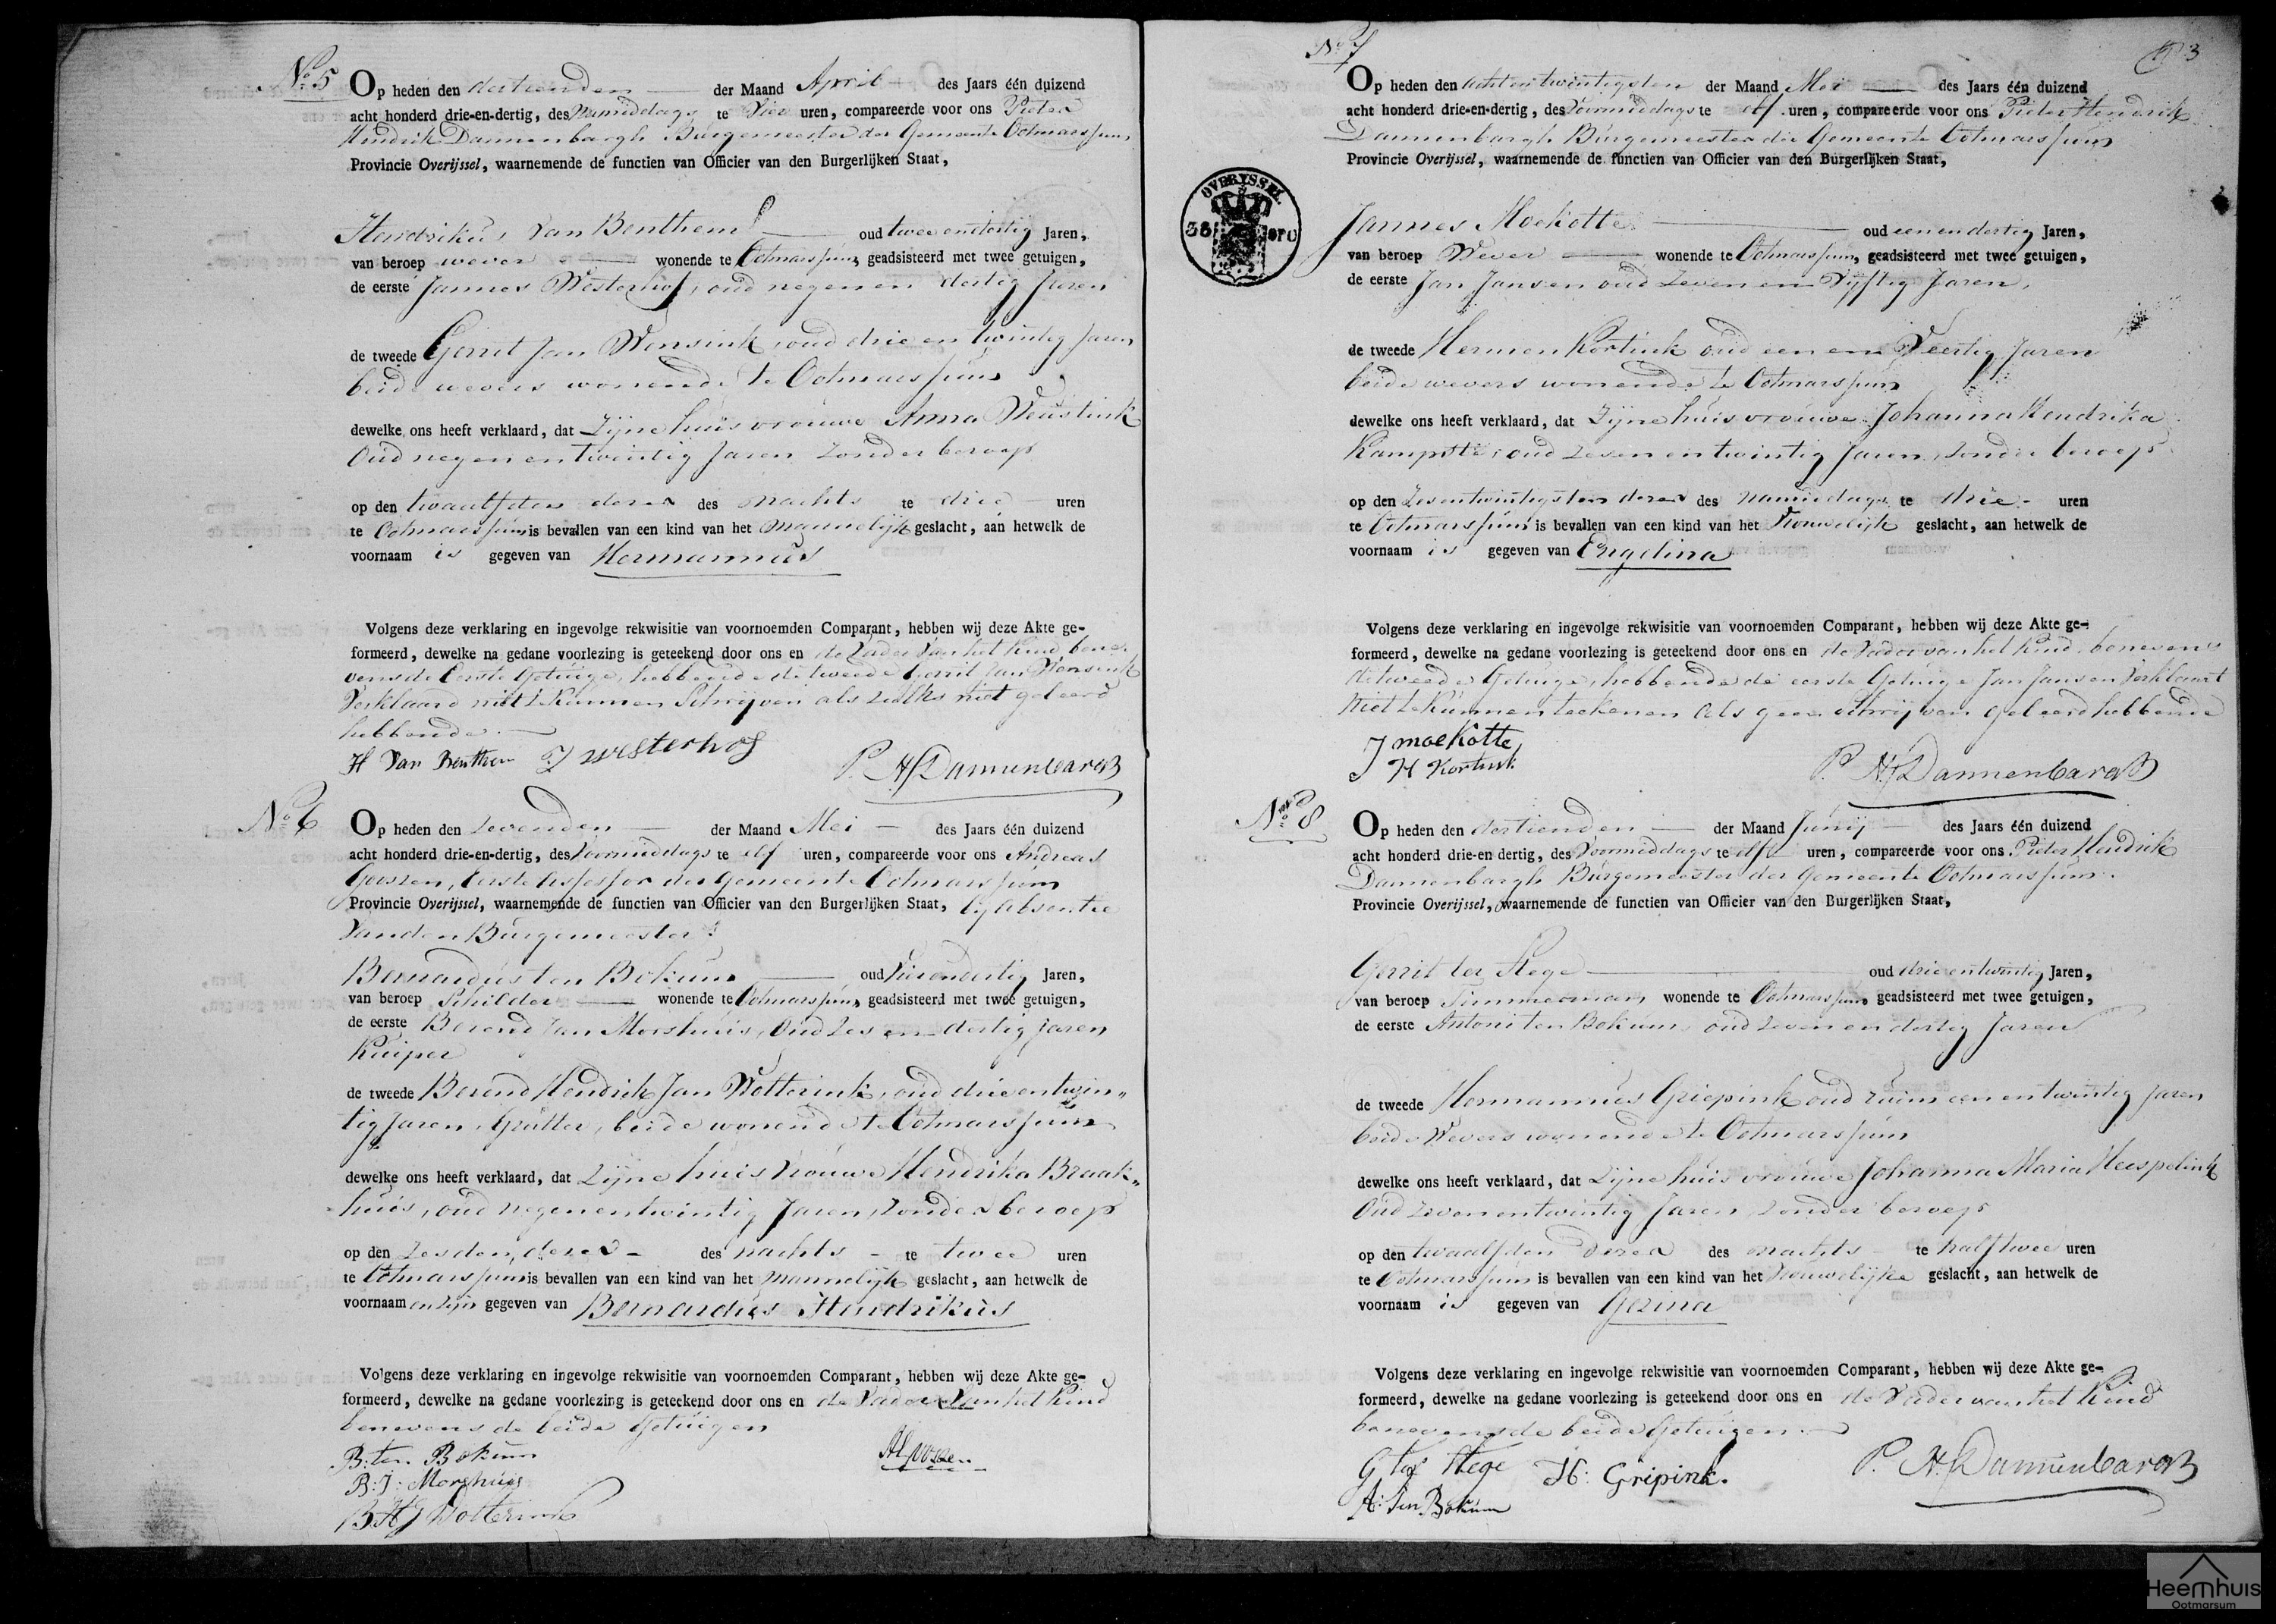 No 5 Op heden den dertienden der Maand April des Jaars één duizend
acht honderd drie-en-dertig, des Namiddags te vier uren, compareerde voor ons Pieter
Hendrik Dannenbargh Burgemeester der Gemeente Ootmarssum
Provincie Overijssel, waarnemende de functien van Officier van den Burgerlijken Staat,
Hendrikus van Benthem oud twee en dertig Jaren,
van beroep wever wonende te Ootmarssum, geadsisteerd met twee getuigen,
de eerste Jannes Westerhof, oud negen en dertig Jaren
de tweede Gerrit Jan Wensink, oud drie en twintig Jaren
beide wevers wonende te Ootmarssum
dewelke ons heeft verklaard, dat Zijne huisvrouwe Anna Weustink
Oud negen en twintig Jaren Zonder beroep
op den twaalfden dezer des nachts te drie uren
te Ootmarssum is bevallen van een kind van het mannelijk geslacht, aan hetwelk de
voornaam is gegeven van Hermannus
Volgens deze verklaring en ingevolge rekwisitie van voornoemden Comparant, hebben wij deze Akte ge-
formeerd, dewelke na gedane voorlezing is geteekend door ons en de Vader van het Kind bene-
vens de Eerste Getuige, hebbende de tweede Gerrit Jan Wensink
Verklaard niet te Kunnen Schrijven als zulks niet geleerd
hebbende.
H Van Benthem J westerhof P. H. Dannenbargh
No 6 Op heden den Zevenden der Maand Mei des Jaars één duizend
acht honderd drie-en-dertig, des Voormiddags te elf uren, compareerde voor ons Andreas
Eerste Assessor der Gemeente Ootmarssum
Provincie Overijssel, waarnemende de functien van Officier van den Burgerlijken Staat, by Absentie
Van den Burgemeester
Bernardus ten Bokum oud Vier en dertig Jaren,
van beroep Schilder wonende te Ootmarssum, geadsisteerd met twee getuigen,
de eerste Berend Jan Morshuis, Oud Zes en dertig Jaren
Kuiper
de tweede Berend Hendrik Jan Wolterink, oud drie en twin„
tig Jaren, beide wonende te Ootmarssum
dewelke ons heeft verklaard, dat Zijne huis Vrouwe Hendrika Braak„
huis, oud negen en twintig Jaren, Zonder beroep
op den Zesden dezer des nachts te twee uren
te Ootmarssum is bevallen van een kind van het mannelijk geslacht, aan hetwelk de
voornaamen zijn gegeven van Bernardus Hendrikus
Volgens deze verklaring en ingevolge rekwisitie van voornoemden Comparant, hebben wij deze Akte ge-
formeerd, dewelke na gedane voorlezing is geteekend door ons en de Vader van het Kind
benevens de beide Getuigen
B: ten Bokum
B: J: Morshuis
B H J Wolterink
3
No 7
Op heden den achtentwintigsten der Maand Mei des Jaars één duizend
acht honderd drie-en-dertig, des Voormiddags te elf uren, compareerde voor ons Pieter Hendrik
Dannenbargh Burgemeester der Gemeente Ootmarssum
Provincie Overijssel, waarnemende de functien van Officier van den Burgerlijken Staat,
OVERYSSEL
Jannes Moekotte oud een en dertig Jaren,
van beroep Wever wonende te Ootmarssum, geadsisteerd met twee getuigen,
de eerste Jan Jansen oud Zeven en Vijftig Jaren,
de tweede Hermen Kortink oud een en Veertig Jaren
beide wevers wonende te Ootmarssum
dewelke ons heeft verklaard, dat Zijne huisvrouwe Johanna Hendrika
oud Zeven en twintig Jaren, Zonder beroep
op den Zesentwintigsten dezer des namiddags te drie uren
te Ootmarssum is bevallen van een kind van het Vrouwelijk geslacht, aan hetwelk de
voornaam is gegeven van Engelina
Volgens deze verklaring en ingevolge rekwisitie van voornoemden Comparant, hebben wij deze Akte ge-
formeerd, dewelke na gedane voorlezing is geteekend door ons en de Vader van het Kind benevens
de tweede Getuige, hebbende de eerste Getuige Jan Jansen Verklaart
Niet te Kunnen teekenen als geen Schrijven geleerd hebbende
J moekotte
H Kortink P. H. Dannenbargh
No 8 Op heden den dertienden der Maand Junij des Jaars één duizend
acht honderd drie-en dertig, des Voormiddags te elf uren, compareerde voor ons Pieter Hendrik
Dannenbargh Burgemeester der Gemeente Ootmarssum.
Provincie Overijssel, waarnemende de functien van Officier van den Burgerlijken Staat,
Gerrit ter Stege oud drie en twintig Jaren,
van beroep Timmerman wonende te Ootmarssum, geadsisteerd met twee getuigen,
de eerste Antoni ten Bokum oud Zeven en dertig Jaren
de tweede Hermannus Griepink oud ruim een en twintig Jaren
beide Wevers wonende te Ootmarssum
dewelke ons heeft verklaard, dat Zijne huisvrouwe Johanna Maria Heespelink
Oud Zeven en twintig Jaren, Zonder beroep
op den twaalfden dezer des nachts te half twee uren
te Ootmarssum is bevallen van een kind van het Vrouwelijke geslacht, aan hetwelk de
voornaam is gegeven van Gezina
Volgens deze verklaring en ingevolge rekwisitie van voornoemden Comparant, hebben wij deze Akte ge-
formeerd, dewelke na gedane voorlezing is geteekend door ons en de Vader van het Kind
benevens de beide Getuigen.
G ter Stege H: Gripink. P. H. Dannenbargh
A: ten Bokum
Heemhuis
Ootmarsum